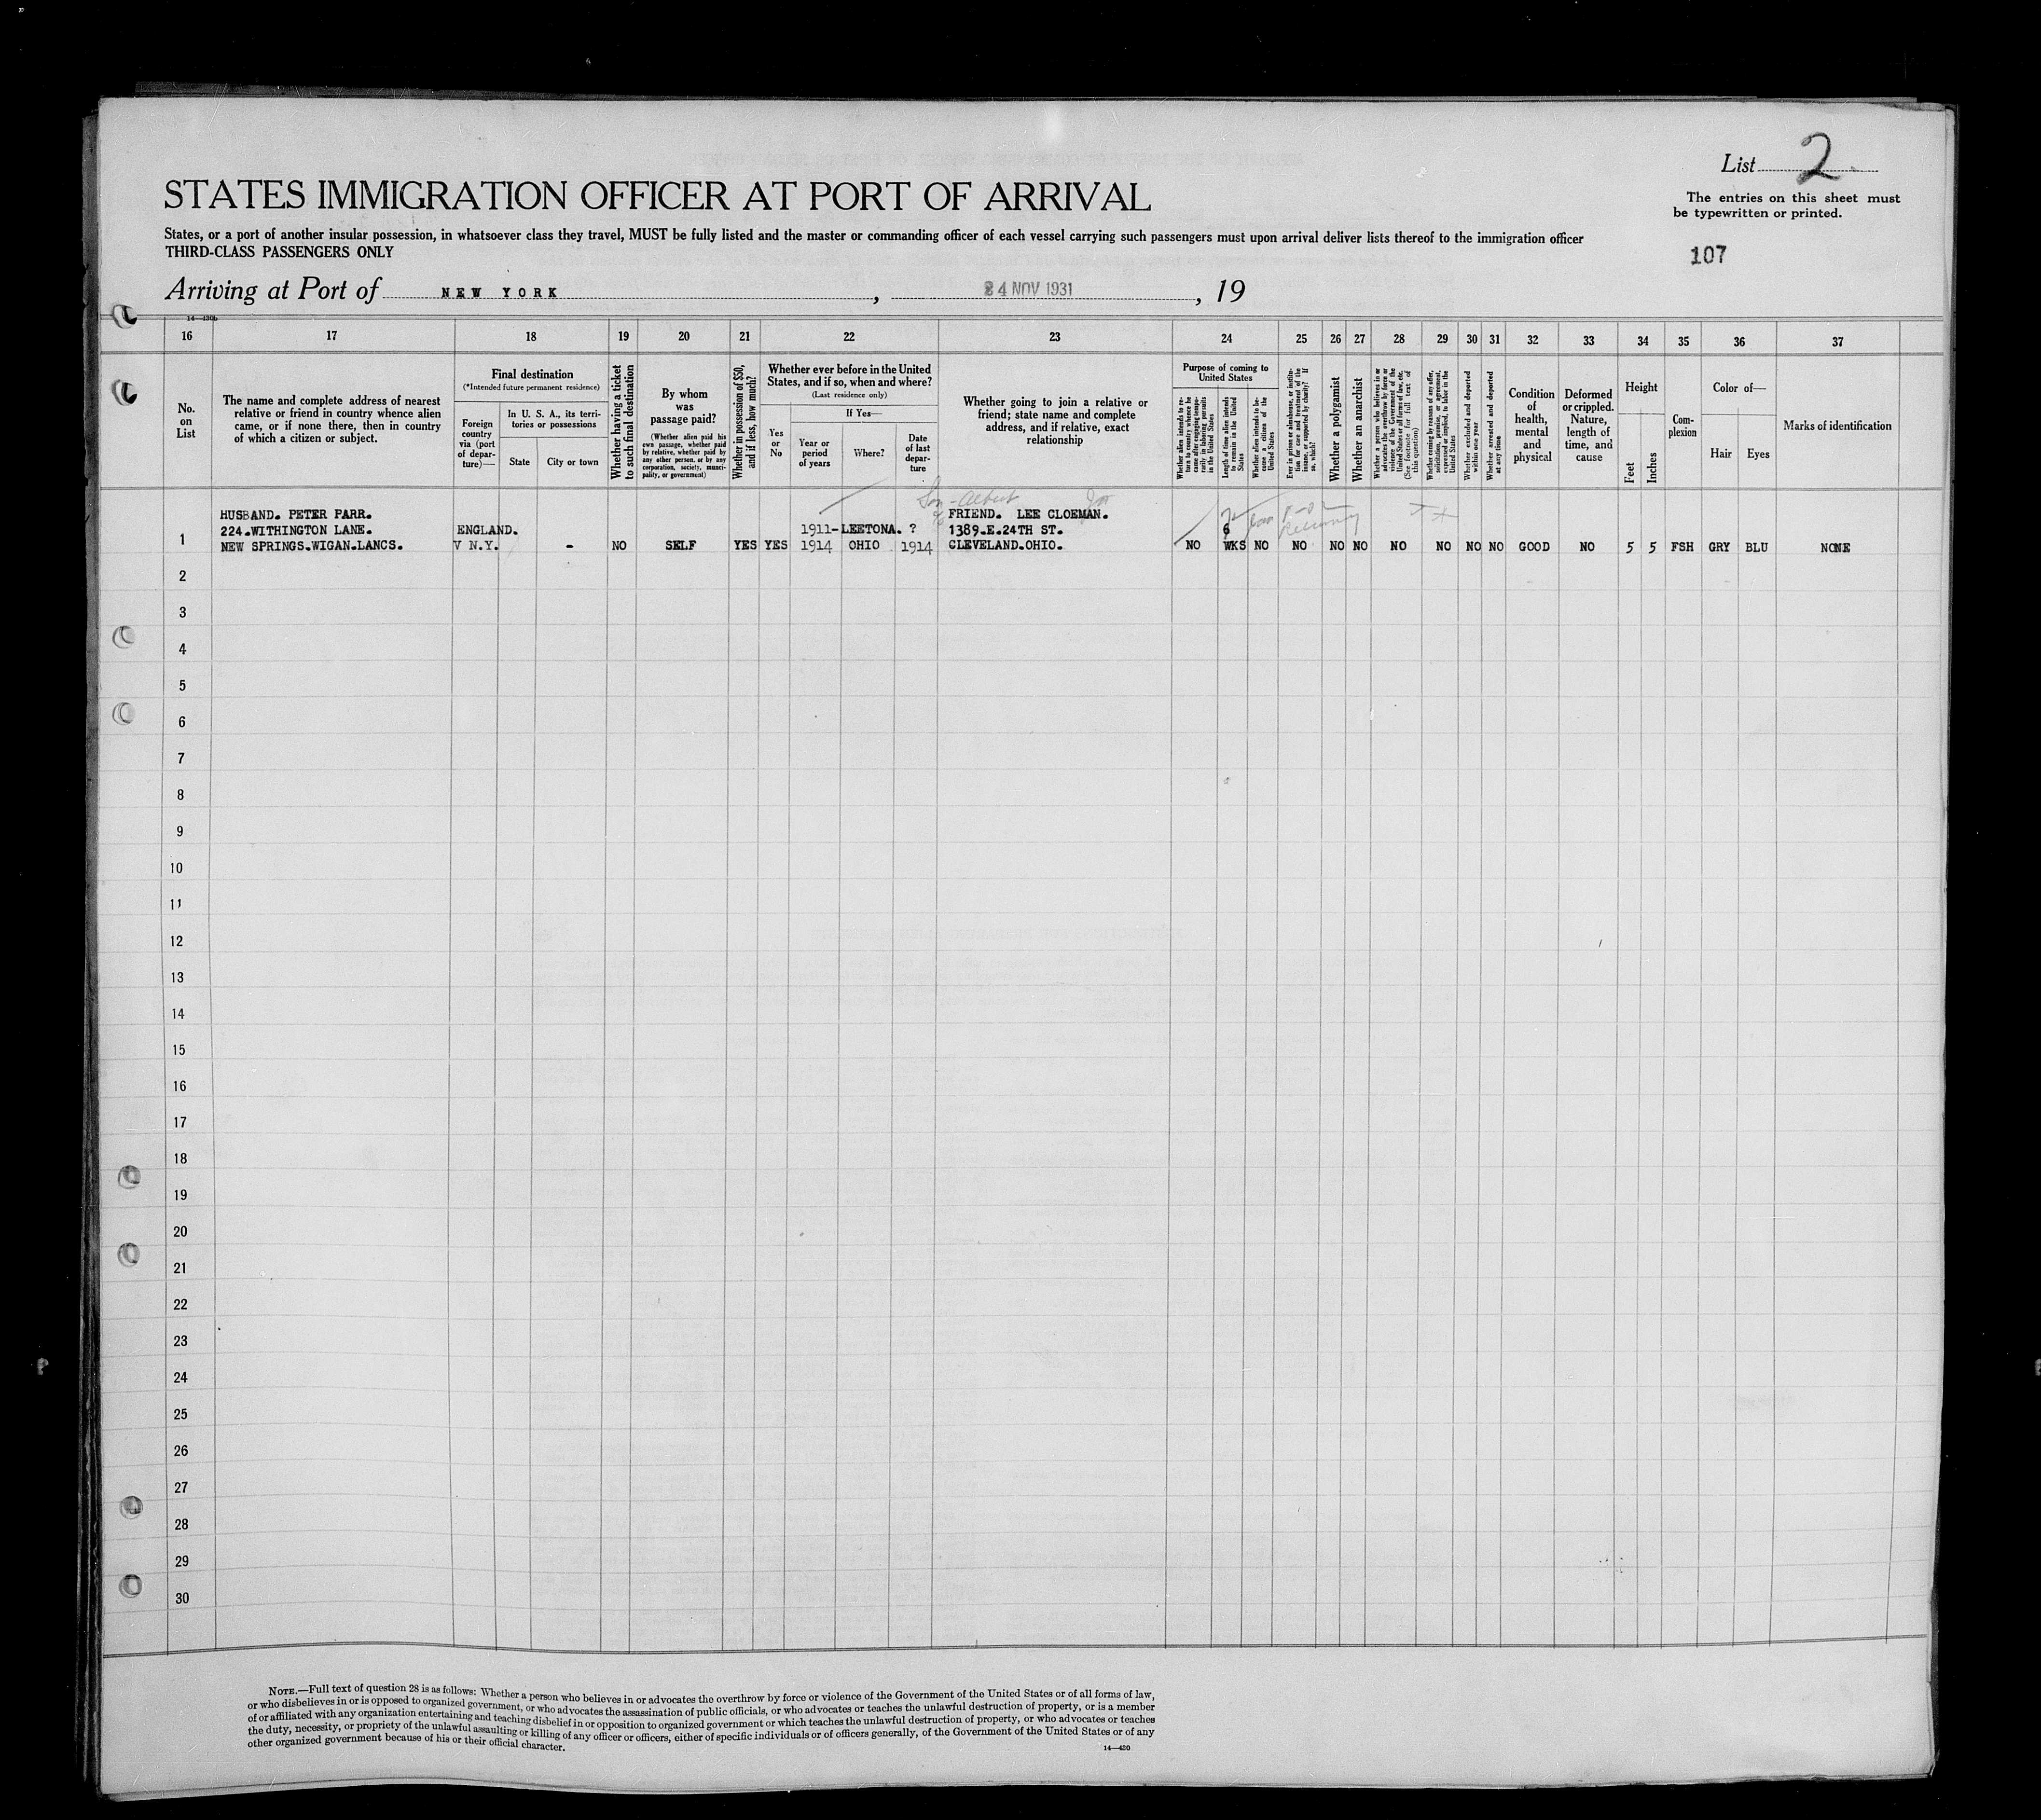 List 2
The entries on this sheet must
be typewritten or printed.
STATES IMMIGRATION OFFICER AT PORT OF ARRIVAL
States, or a port of another insular possession, in whatsoever class they travel, MUST be fully listed and the master or commanding officer of each vessel carrying such passengers must upon arrival deliver lists thereof to the immigration officer
THIRD-CLASS PASSENGERS ONLY
107
Arriving at Port of NEW YORK, 24 NOV 1931, 19
16 17 18 19 20 21 22 23 24 25 26 27 28 29 30 31 32 33 34 35 36 37
No.
on
List
The name and complete address of nearest
relative or friend in country whence alien
came, or if none there, then in country
of which a citizen or subject.
Final destination
(*Intended future permanent residence)
Foreign
country
via (port
of depar-
ture)—
In U. S. A., its terri-
tories or possessions
State
City or town
Whether having a ticket
to such final destination
By whom
was
passage paid?
(Whether alien paid his
own passage, whether paid
by relative, whether paid by
any other person, or by any
corporation, society, munici-
pality, or government)
Whether in possession of $50,
and if less, how much?
Whether ever before in the United
States, and if so, when and where?
(Last residence only)
Yes
or
No
If Yes—
Year or
period
of years
Where?
Date
of last
depar-
ture
Whether going to join a relative or
friend; state name and complete
address, and if relative, exact
relationship
Purpose of coming to
United States
Whether alien intends to re-
turn to country whence he
came after engaging tempo-
rarily in laboring pursuits
in the United States
Length of time alien intends
to remain in the United
States
Whether alien intends to be-
come a citizen of the
United States
Ever in prison or almshouse, or institu-
tion for care and treatment of the
insane, or supported by charity? If
so, which?
Whether a polygamist
Whether an anarchist
Whether a person who believes in or
advocates the overthrow by force or
violence of the Government of the
United States or all forms of law, etc.
(See footnote for full text of
this question)
Whether coming by reasons of any offer,
solicitation, promise, or agreement,
expressed or implied, to labor in the
United States
Whether excluded and deported
within one year
Whether arrested and deported
at any time
Condition
of
health,
mental
and
physical
Deformed
or crippled.
Nature,
length of
time, and
cause
Height
Feet
Inches
Com-
plexion
Color of—
Hair
Eyes
Marks of identification
Son - Albert
HUSBAND. PETER PARR. FRIEND. LEE CLOEMAN.
224.WITHINGTON LANE. ENGLAND. 1911- LEETONA. ? 1389.E.24TH ST. 6
1 NEW SPRINGS.WIGAN.LANCS. V N.Y. - NO SELF YES YES 1914 OHIO 1914 CLEVELAND.OHIO. NO WKS NO NO NO NO NO NO NO NO GOOD NO 5 5 FSH GRY BLU NONE
2
3
4
5
6
7
8
9
10
11
12
13
14
15
16
17
18
19
20
21
22
23
24
25
26
27
28
29
30
NOTE.—Full text of question 28 is as follows: Whether a person who believes in or advocates the overthrow by force or violence of the Government of the United States or of all forms of law,
or who disbelieves in or is opposed to organized government, or who advocates the assassination of public officials, or who advocates or teaches the unlawful destruction of property, or is a member
of or affiliated with any organization entertaining and teaching disbelief in or opposition to organized government or which teaches the unlawful destruction of property, or who advocates or teaches
the duty, necessity, or propriety of the unlawful assaulting or killing of any officer or officers, either of specific individuals or of officers generally, of the Government of the United States or of any
other organized government because of his or their official character.
14—430